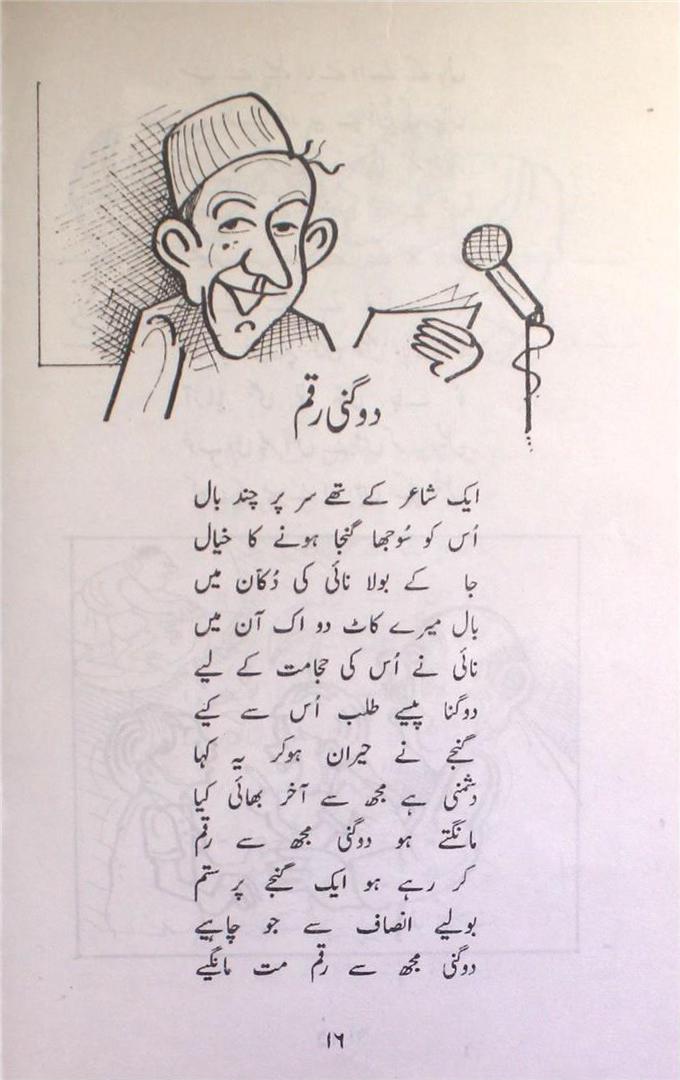 دوگنی رقم
ایک شاعر کے تھے سر پر چند بال
اُس کو سُوجھا گنجا ہونے کا خیال
جا کے بولا نائی کی دُکان میں
بال میرے کاٹ دو اک آن میں
نائی نے اُس کی حجامت کے لیے
دوگنا پیسے طلب اُس سے کیے
گنجے نے حیران ہوکر یہ کہا
دشمنی ہے مجھ سے آخر بھائی کیا
مانگتے ہو دوگنی مجھ سے رقم
کر رہے ہو ایک گنجے پر ستم
بولیے انصاف سے جو چاہیے
دوگنی مجھ سے رقم مت مانگیے
۱۶